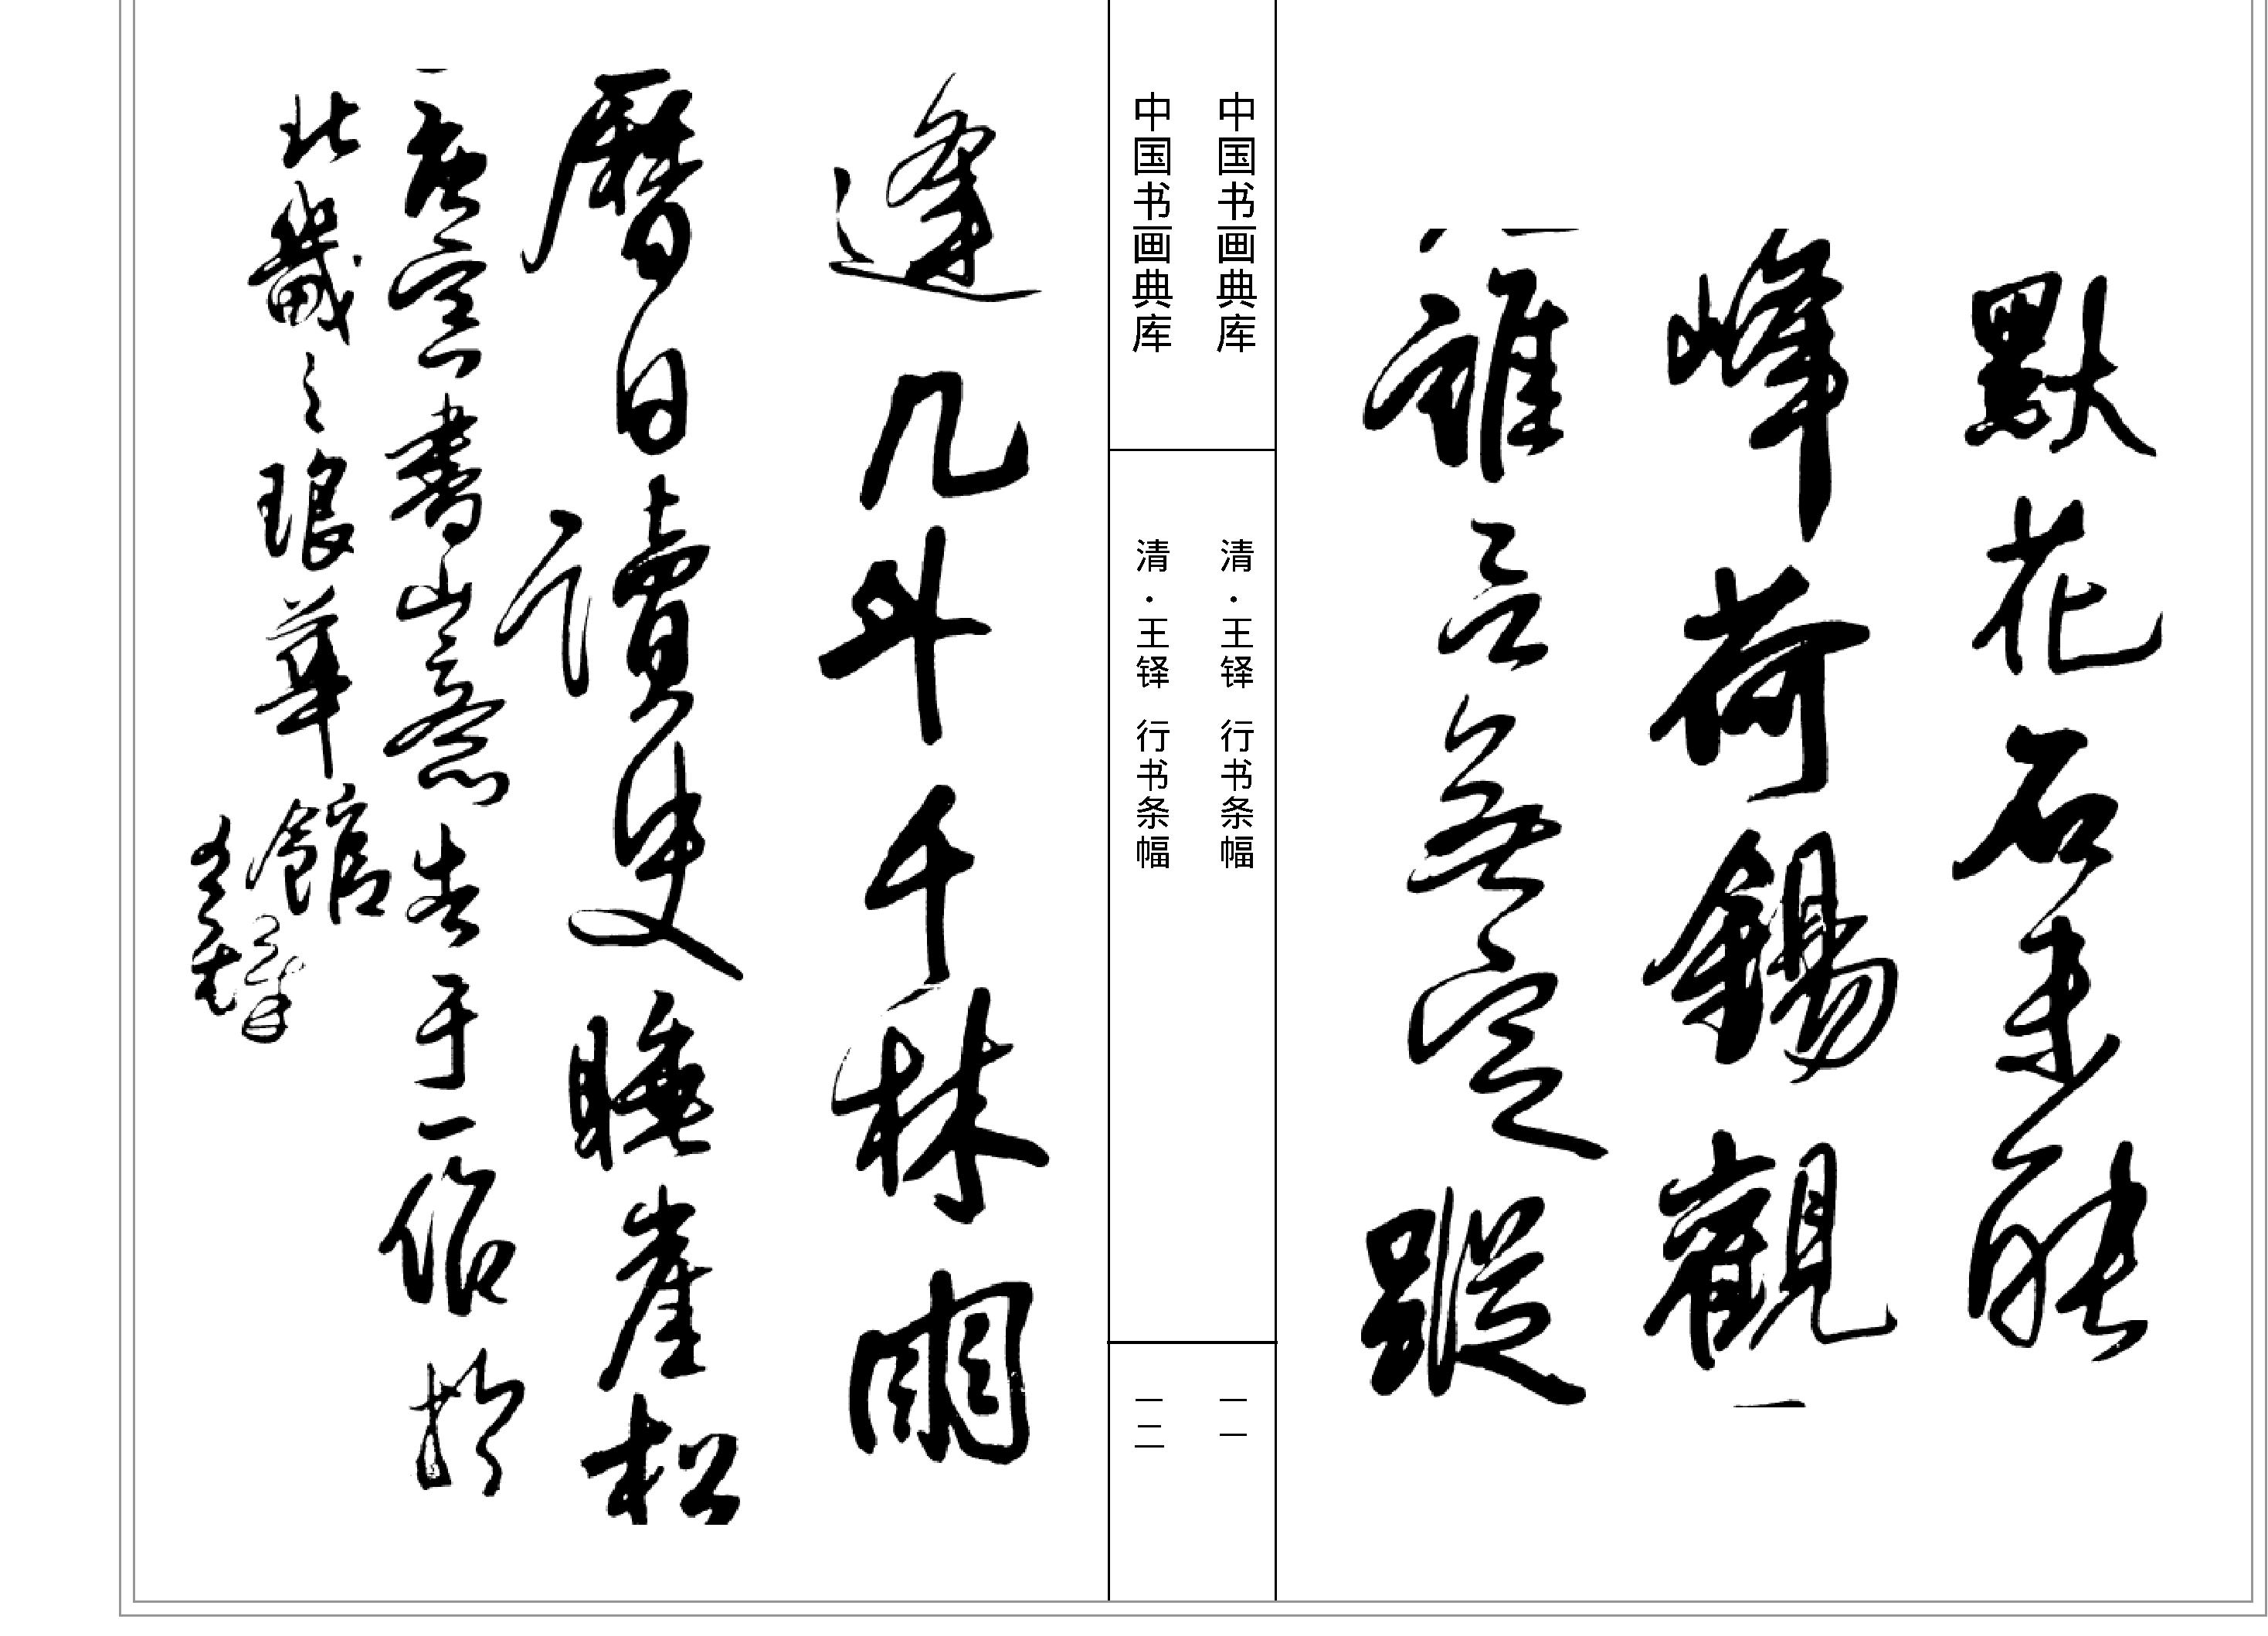 默花石未能
峰荷錫觀
言無定蹤
中国书画典库 清·王铎 行书条幅 一一
中国书画典库 清·王铎 行书条幅 一二
逢几斗千林雨
曆日讀史睡崖松
書于一
北畿之琅華館
王鐸